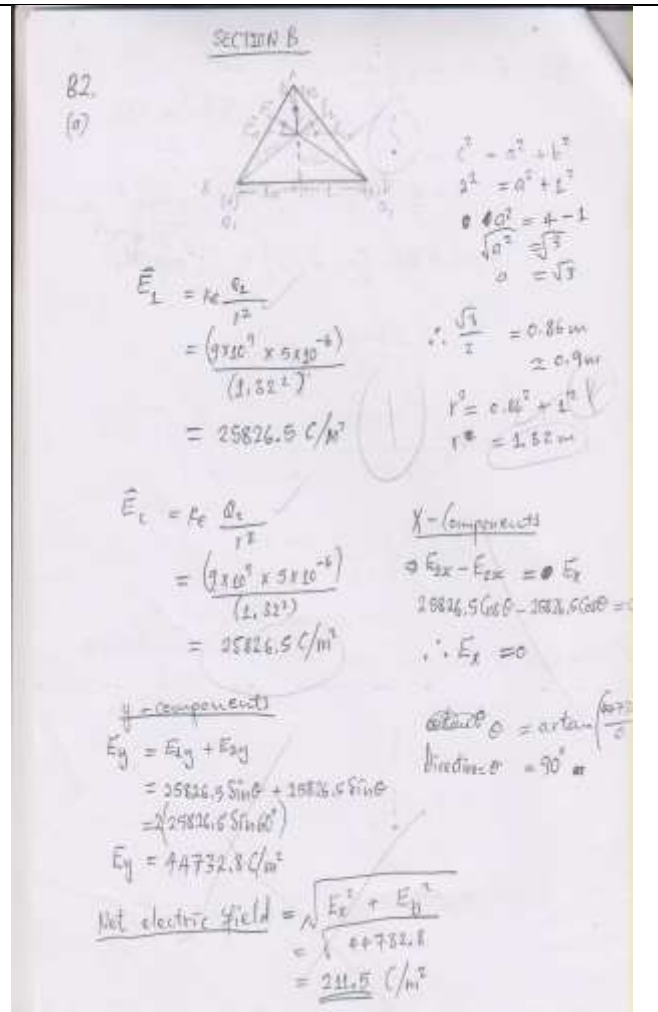 SECTION B
B2.
(a)
c² = a² + b²
2² = a² + 1²
a² = 4 - 1
√a² = √3
a = √3
∴ √3/2 = 0.86m
≃ 0.9m
r² = 0.86² + 1²
r = 1.32m
E⃗₁ = ke Q₁/r²
= (9x10⁹ x 5x10⁻⁶)/(1.32²)
= 25826.5 C/m²
E⃗₂ = ke Q₂/r²
= (9x10⁹ x 5x10⁻⁶)/(1.32²)
= 25826.5 C/m²
X - Components
⇒ E₁ₓ - E₂ₓ = Eₓ
25826.5 Cosθ - 25826.5 Cosθ = 0
∴ Eₓ = 0
θ = artan
Direction θ = 90°
y - components
Ey = E1y + E2y
= 25826.5 Sinθ + 25826.5 Sinθ
= 2(25826.5 Sin60°)
Ey = 44732.8 C/m²
Net electric field = √Ex² + Ey²
= √44732.8
= 211.5 C/m²